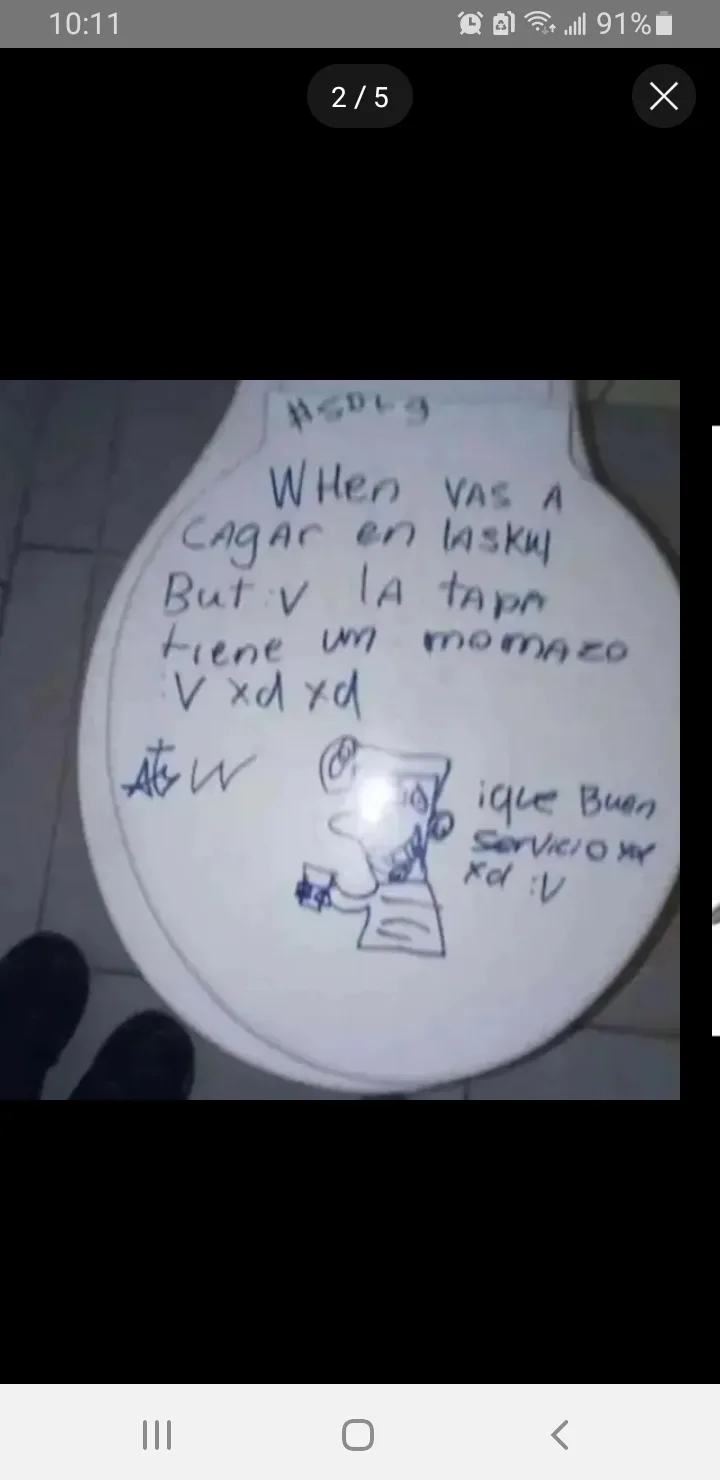 10:11
91%
2 / 5
#SDLg
WHen VAS A
CAgAr en lASKUl
But :V lA tApA
tiene um momAzo
:V xd xd
Att W
¡que Buen
Servicio
xd :V